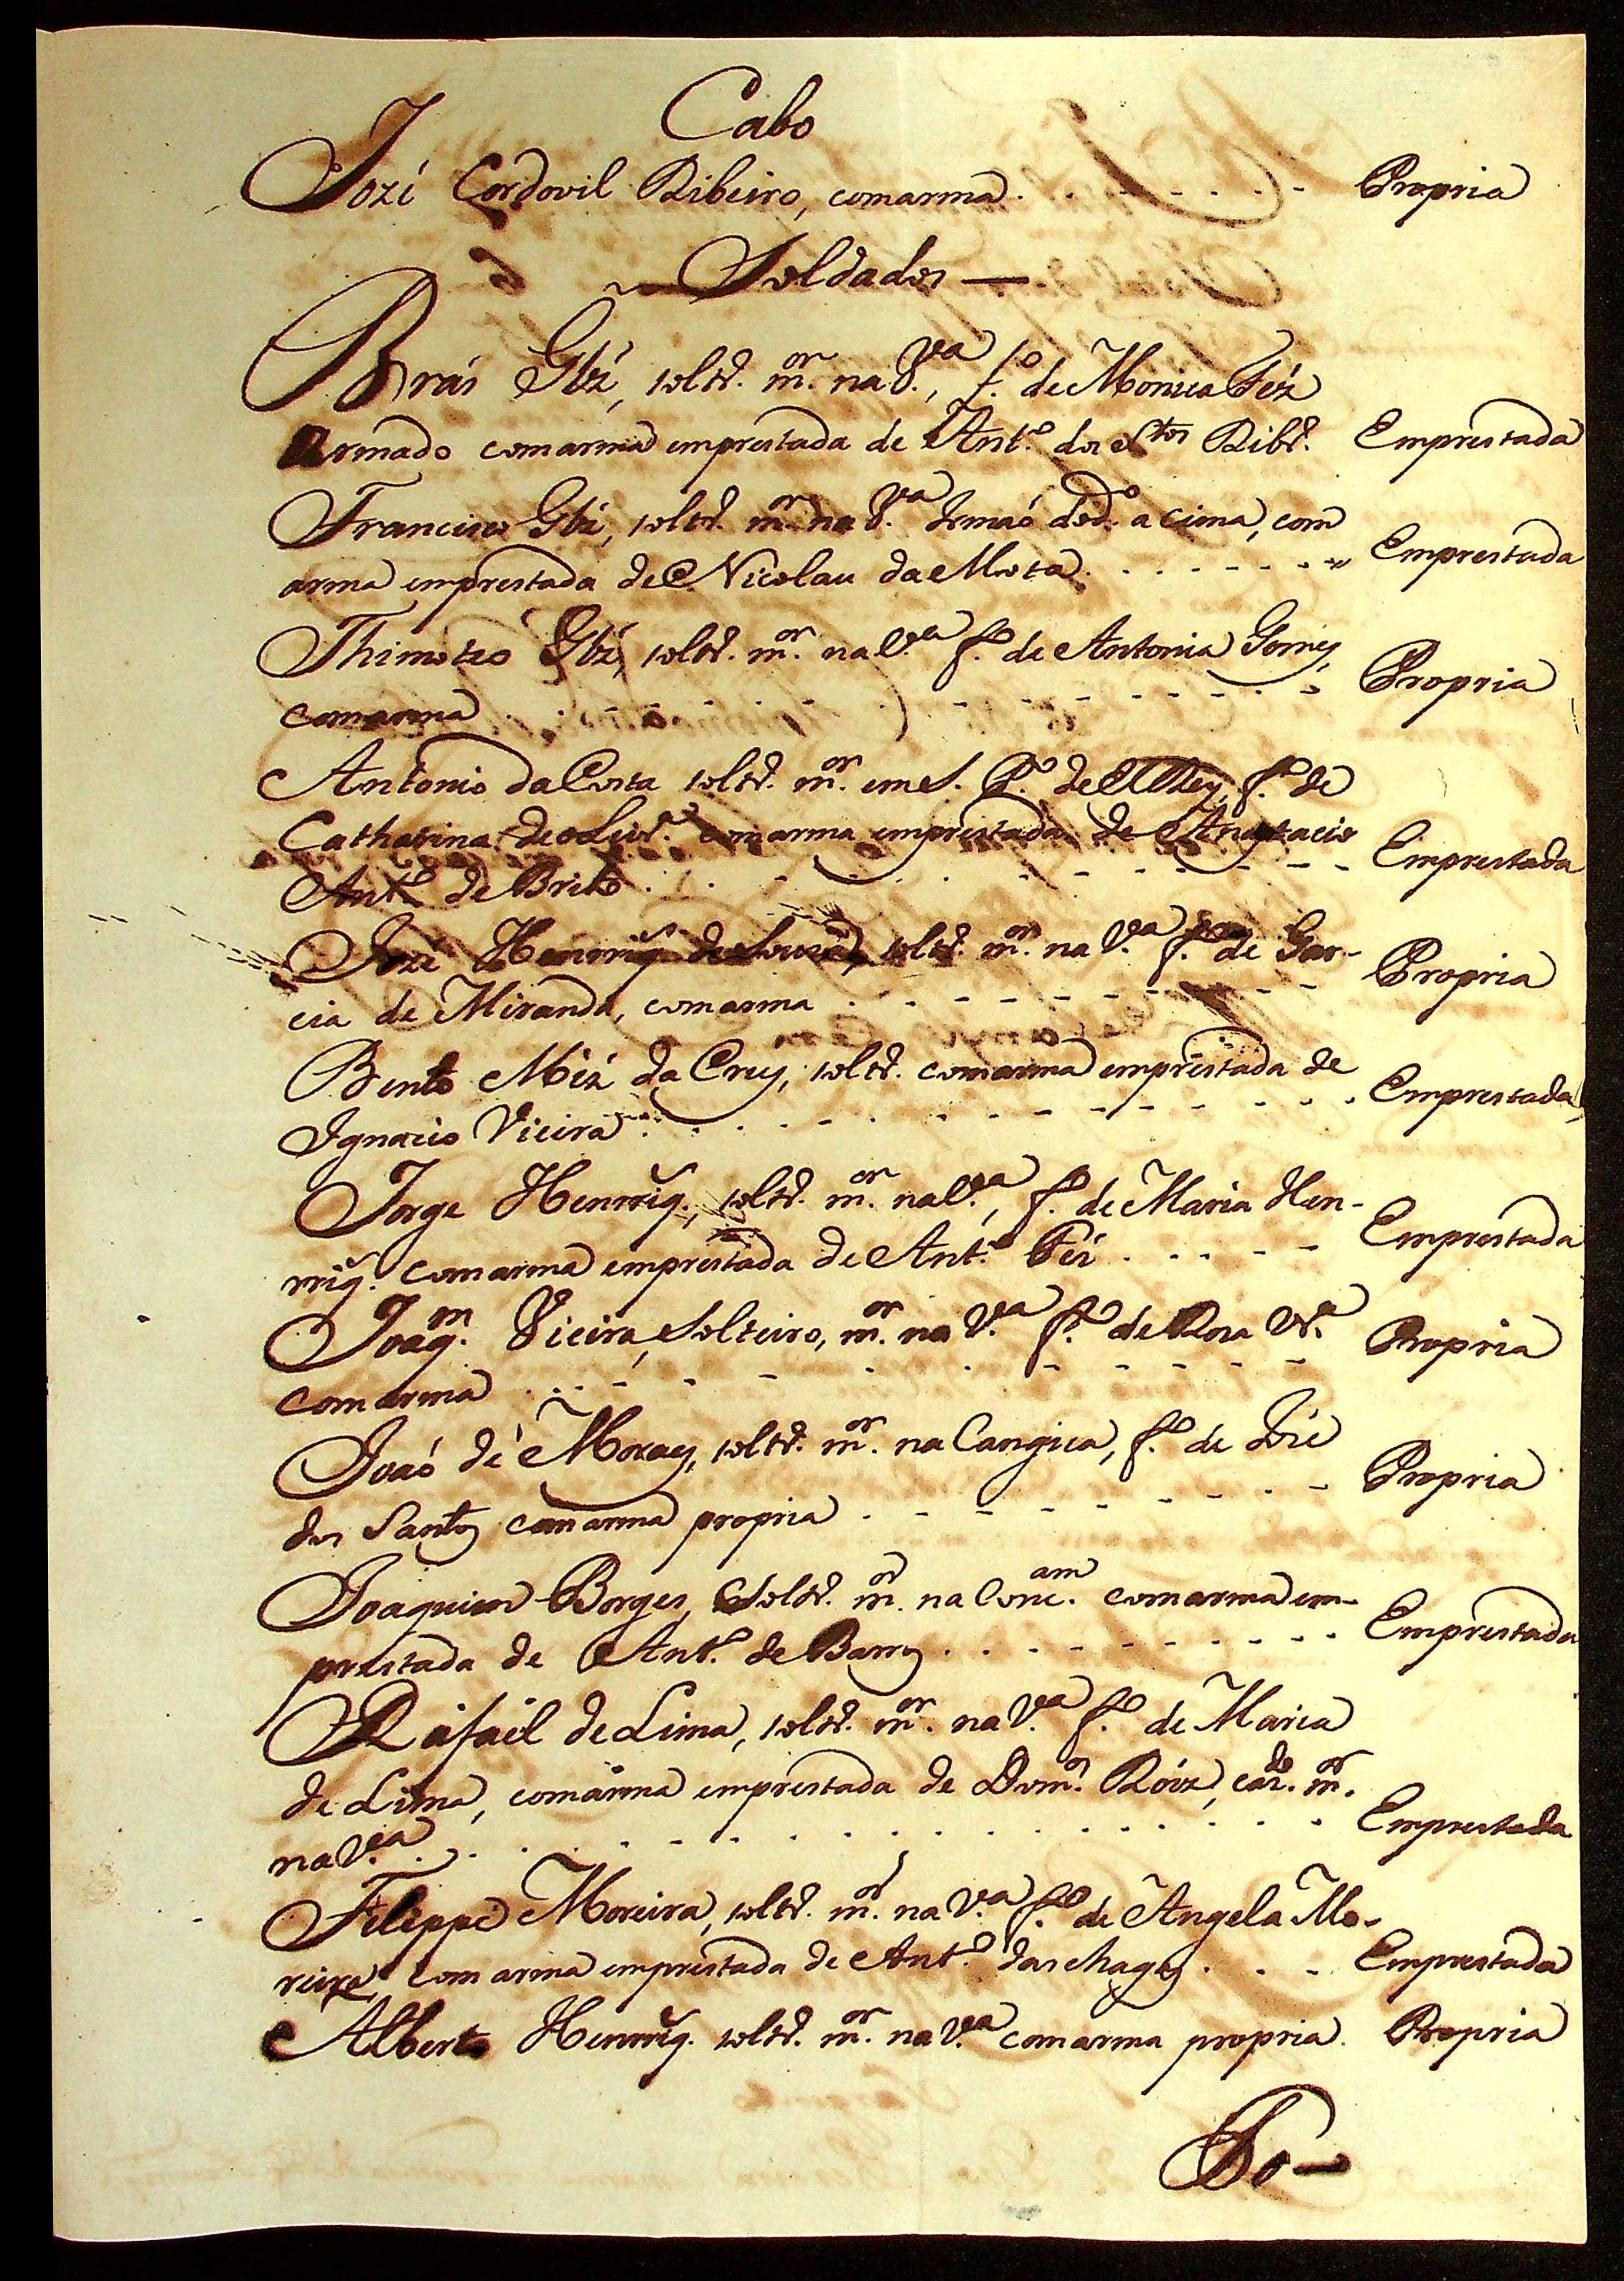 Cabo
Jozé Cordovil Ribeiro, com arma . . . . . . . Propria
Soldados
Brás Glz̃, soltr.o m.or na V.a, f.o de Monica Frz̃
Armado com arma emprestada de Ant.o dos S.tos Ribr.o Emprestada
Francisco Glz̃, soltr.o m.or na V.a Irmaõ do d.o a cima, com
arma emprestada de Nicolau da Mota . . . . . . . Emprestada
Thimoteo Glz̃, soltr.o m.or na V.a f.o de Antonia Gomes,
com arma . . . . . . . . . . . Propria
Antonio da Costa soltr.o m.or em S. P.o de ElRey, f.o de
Catharina de Olivr.a com arma emprestada de Anastacio
Ant.o de Brito . . . . . . . . . . . Emprestada
Jozé Henriq̃. de Souza, soltr.o m.or na V.a f.o de Gar-
cia de Miranda, com arma . . . . . . . . . . Propria
Bento Miz̃ da Cruz, soltr.o com arma emprestada de
Ignacio Vieira . . . . . . . . . . . . Emprestada
Jorge Henriq̃., soltr.o m.or na V.a, f.o de Maria Hen-
riq̃. com arma emprestada de Ant.o Frz̃ . . . . . Emprestada
Joaq.m Vieira, Solteiro, m.or na V.a f.o de Rosa Vr.a
com arma . . . . . . . . . . . Propria
Joaõ de Moraes, soltr.o m.or na Cangica, f.o de Jozé
dos Santos com arma propria . . . . . . . . . Propria
Joaquim Borges, Soltr.o m.or na Conc.am com arma em-
prestada de Ant.o de Barros . . . . . . . . . . Emprestada
Rafael de Lima, soltr.o m.or na V.a f.o de Maria
de Lima, com arma emprestada de Dom.os Roiz, caz.do m.or
na V.a . . . . . . . . . . . . . . . Emprestada
Filippe Moreira, soltr.o m.or na V.a f.o de Angela Mo-
reira com arma emprestada de Ant.o das chagas . . . Emprestada
Alberto Henriq̃. soltr.o m.or na V.a com arma propria. Propria
Bo-